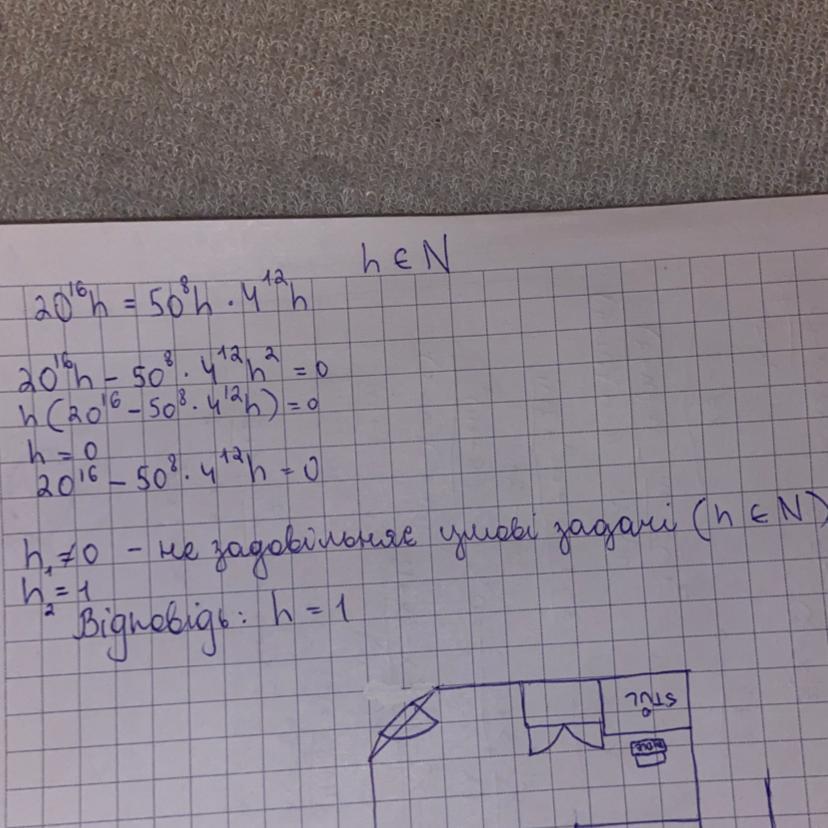 n ∈ N
20¹⁶n = 50⁸n · 4¹²n
20¹⁶n – 50⁸ · 4¹²n² = 0
n(20¹⁶ – 50⁸ · 4¹²n) = 0
n = 0
20¹⁶ – 50⁸ · 4¹²n = 0
n₁ ≠ 0 – не задовільняє умові задачі (n ∈ N)
n₂ = 1
Відповідь: n = 1
STÓŁ